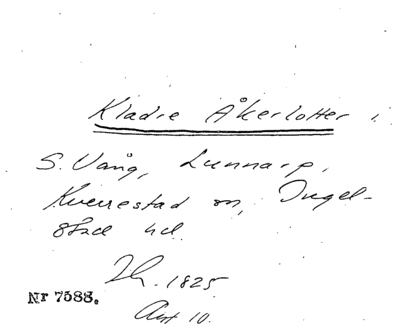 Kladre Åkerlotter i
S. Vång, Lunnarp,
Kverrestad sn, Ingel-
stad hd.
1825
Nr 7588.
10.